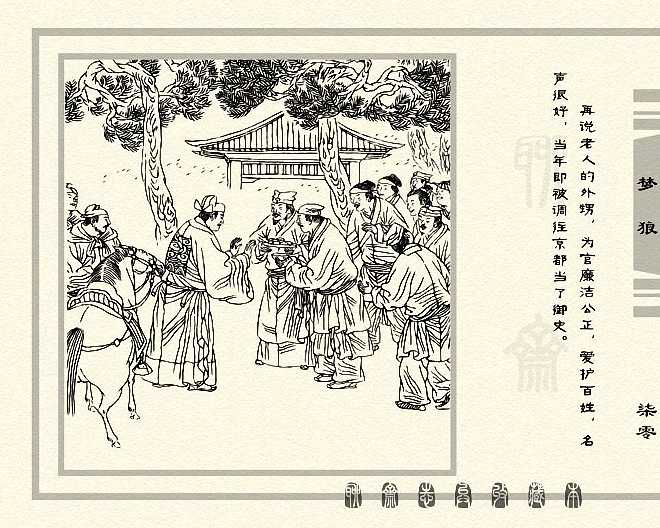 再说老人的外甥，为官廉洁公正，爱护百姓，名
声很好，当年即被调往京都当了御史。
梦狼
柒零